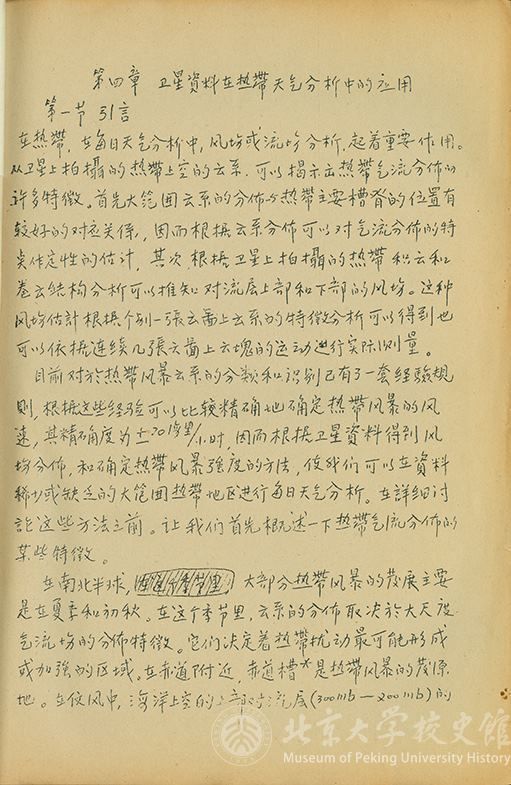 第四章 卫星資料在热帶天气分析中的应用
第一节 引言
在热帶，在每日天气分析中，风坊或流坊分析，起着重要作用。
从卫星上拍攝的热帶上空的云系，可以揭示出热帶气流分佈的
許多特徵。首先大范囲云系的分佈与热帶主要槽脊的位置有
較好的对应关係，因而根据云系分佈可以对气流分佈的特
点作定性的估計，其次，根据卫星上拍攝的热帶积云和
卷云结构分析可以推知对流层上部和下部的风坊。这种
风坊估計根据个别一張云畵上云系的特徵分析可以得到也
可以依据連续几張云畵上云塊的运动進行实际測量。
目前对於热帶风暴云系的分類和识别已有了一套经驗规
則，根据这些经驗可以比較精确地确定热帶风暴的风
速，其精确度为±20浬/小时，因而根据卫星資料得到风
坊分佈，和确定热帶风暴强度的方法，使我们可以在資料
稀少或缺乏的大范囲热帶地区進行每日天气分析。在詳细討
論这些方法之前。让我们首先概述一下热帶气流分佈的
某些特徵。
在南北半球，大部分热帶风暴的发展主要
是在夏季和初秋。在这个季节里，云系的分佈取决於大天气
气流坊的分佈特徵。它们决定着热帶扰动最可能形成
或加强的区域。在赤道附近，赤道槽*是热帶风暴的发源
地。在信风中，海洋上空的上部对流层(300mb—200mb)的
北京大学校史館
Museum of Peking University History